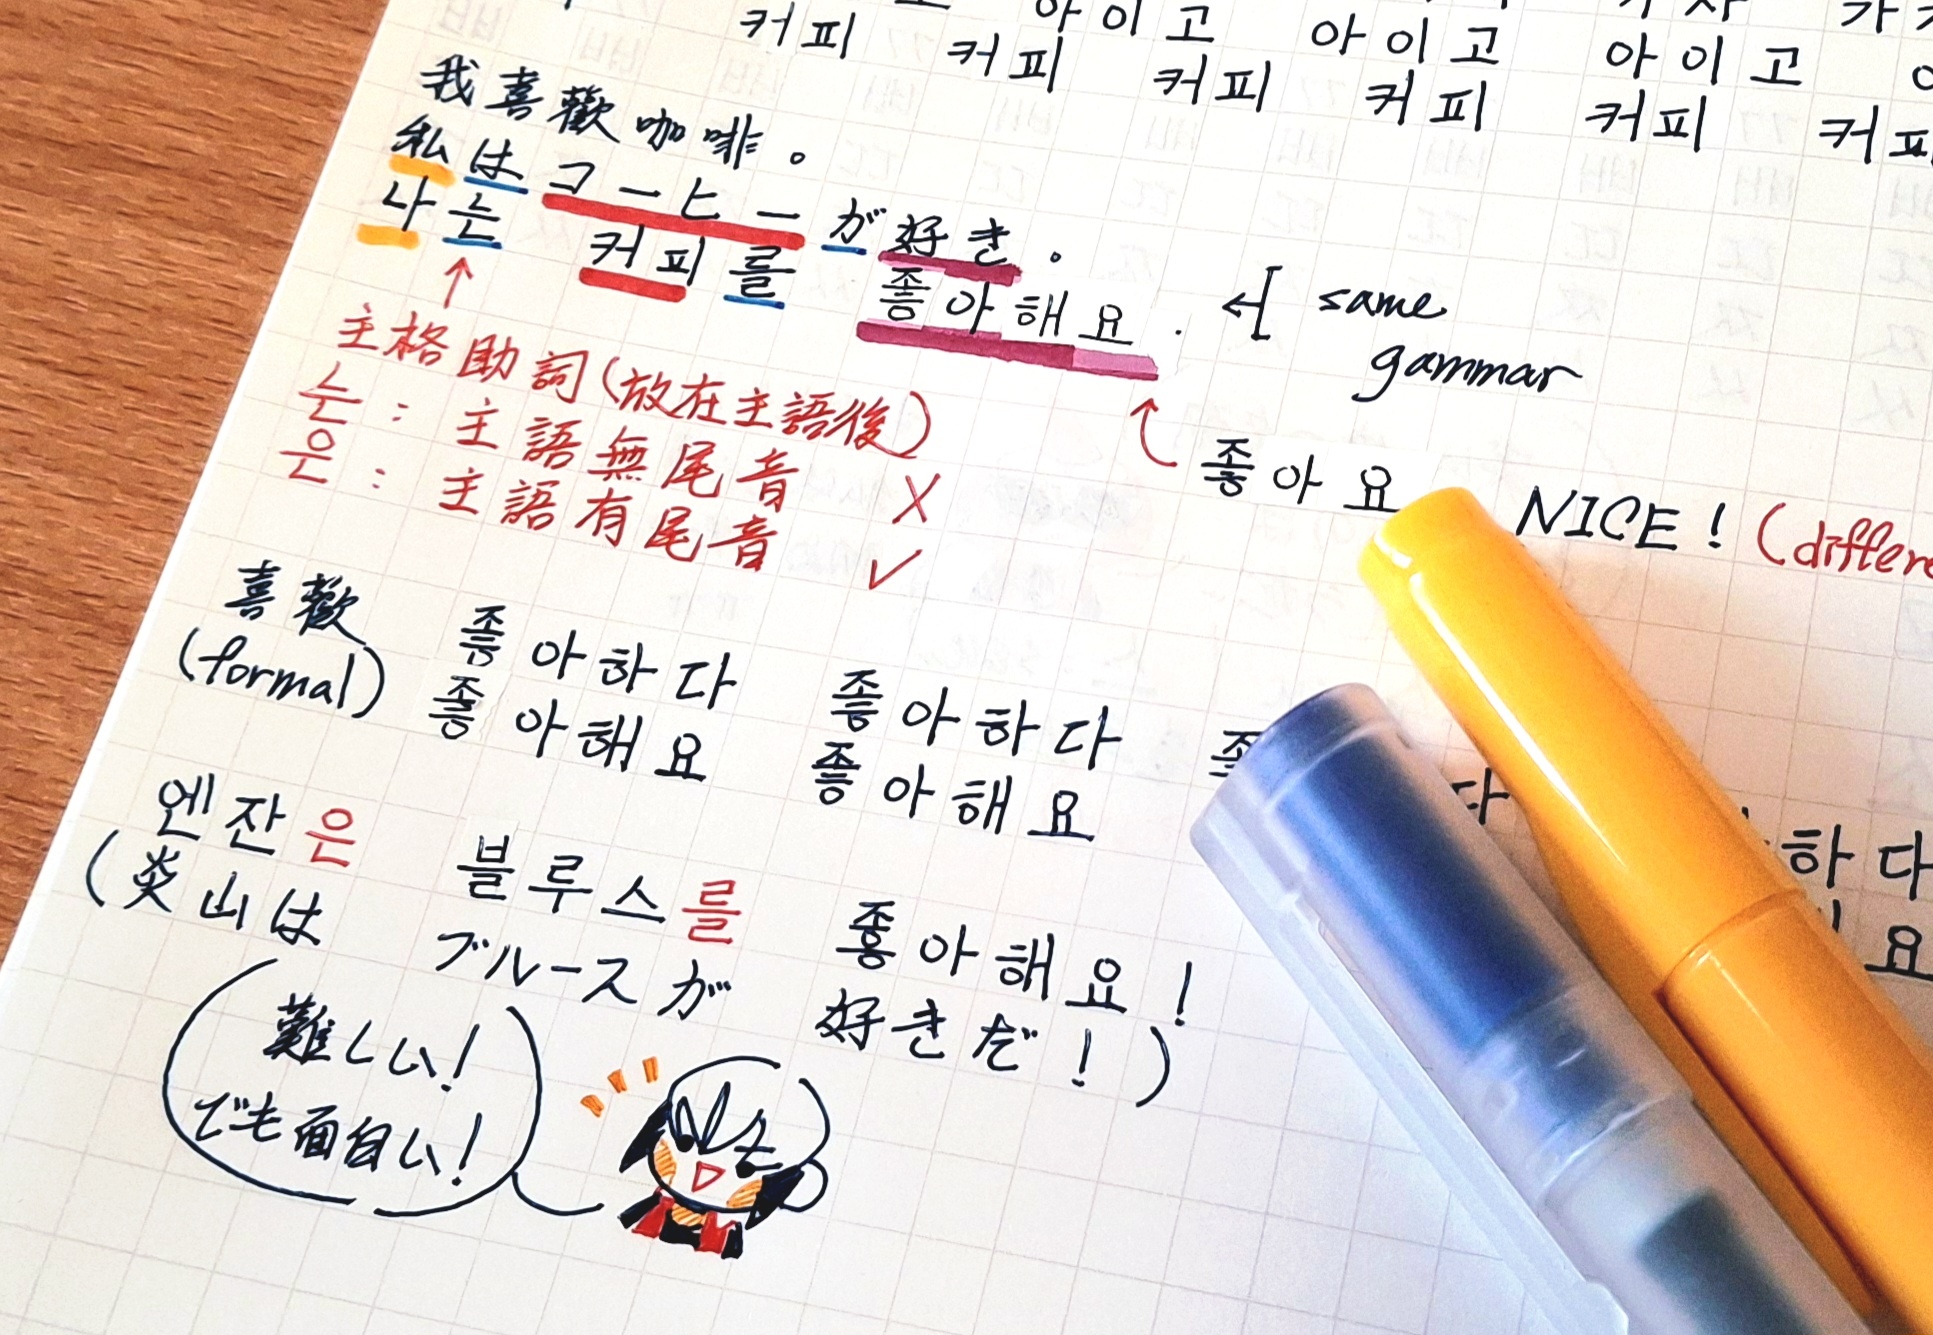 아이고 아이고 아이고
커피 커피 커피 커피 커피 커피
我喜歡咖啡。
私はコーヒーが好き.
나는 커피를 좋아해요.
←[ same
gammar
主格助詞(放在主語後)
는: 主語無尾音 X
은: 主語有尾音 ✓
좋아요 NICE! (differe
喜歡 좋아하다 좋아하다 하다
(formal) 좋아해요 좋아해요 요
엔잔은 블루스를 좋아해요!
(炎山は ブルースが 好きだ!)
難しい!
でも面白い!